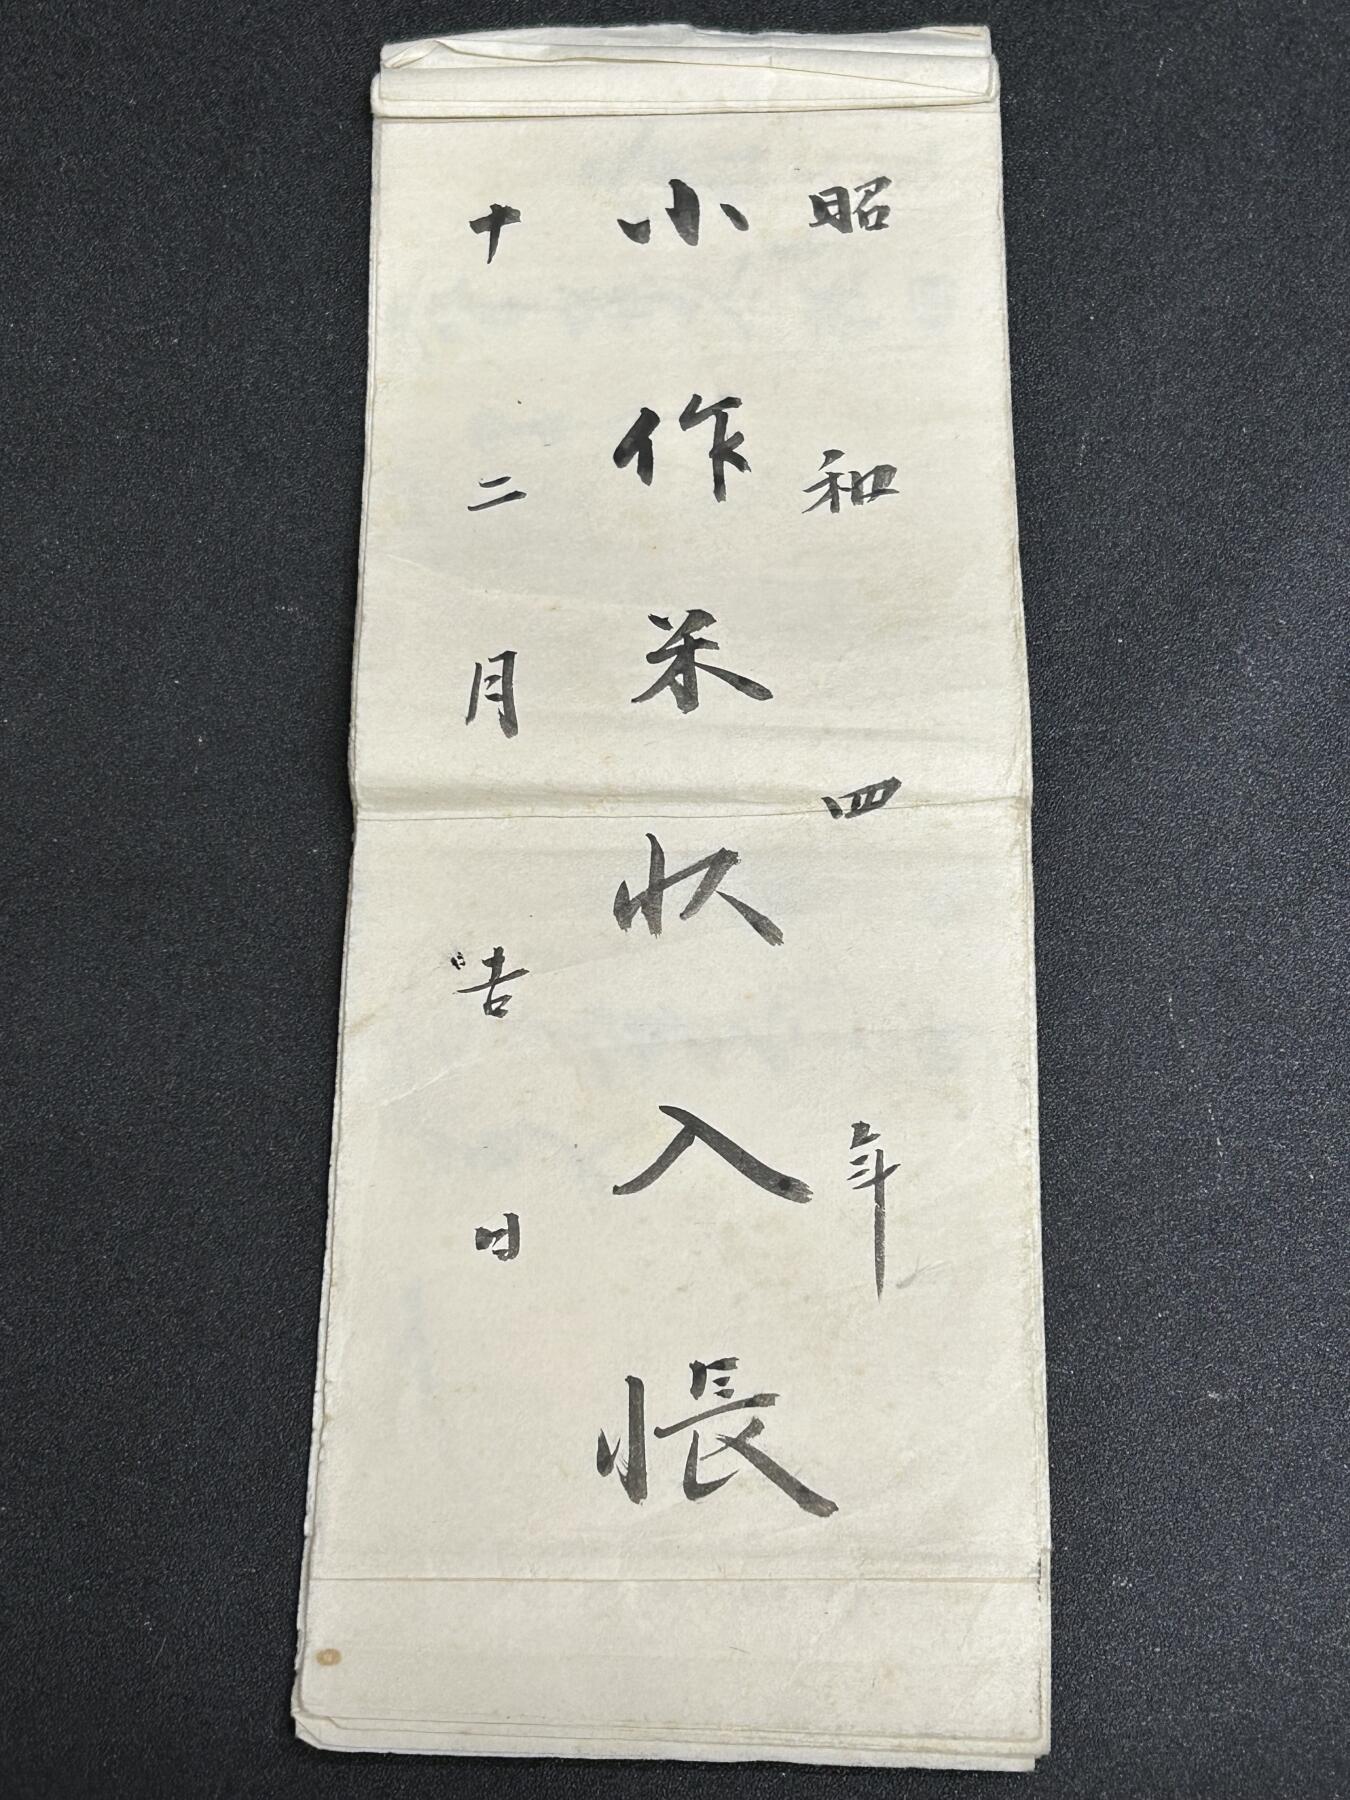 昭和四年
小作米収入帳
十二月吉日